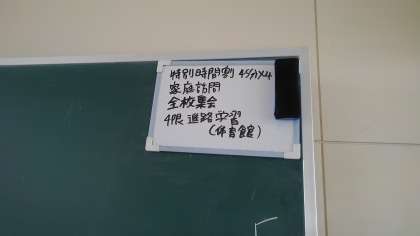 特別時間割 45分×4
家庭訪問
全校集会
4限 進路学習
(体育館)